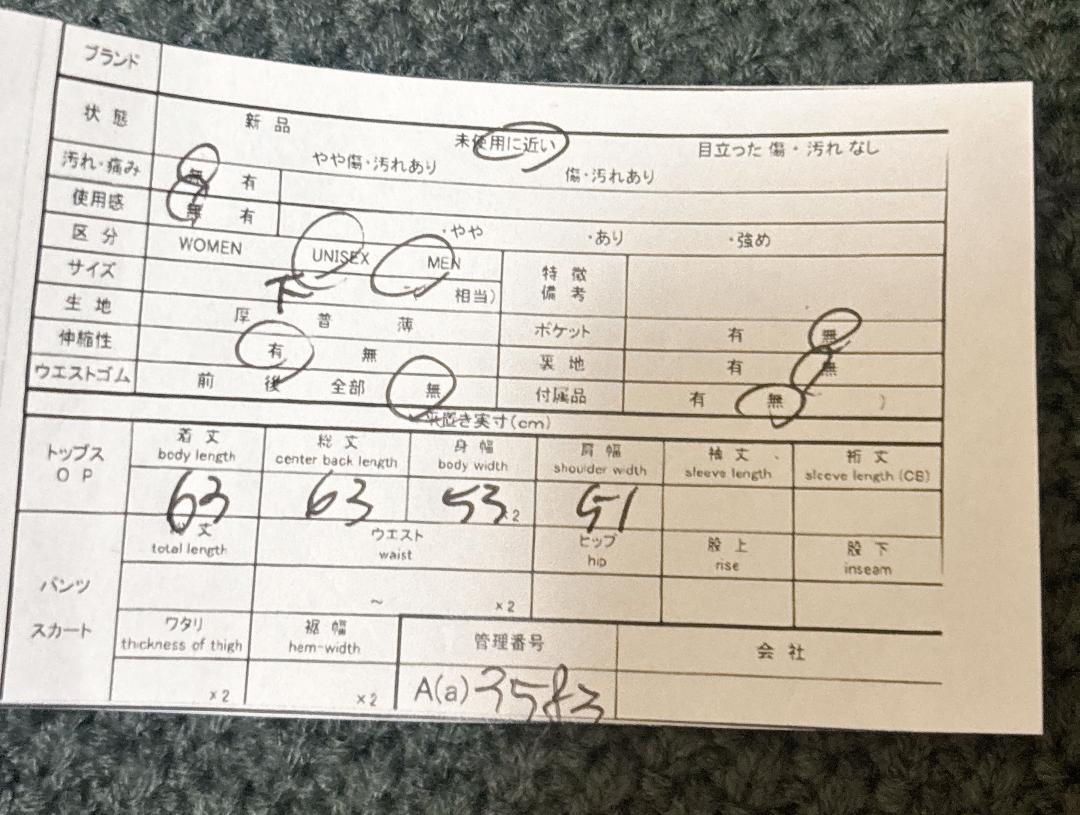 ブランド
状態 新品 未使用に近い 目立った傷・汚れなし
やや傷・汚れあり 傷・汚れあり
汚れ・痛み 無 有
使用感 無 有 ・やや ・あり ・強め
区分 WOMEN UNISEX MEN 特徴
サイズ 相当) 備考
生地 厚 普 薄 ポケット 有 無
伸縮性 有 無 裏地 有 無
ウエストゴム 前 後 全部 無 付属品 有 無 )
平置き実寸(cm)
トップス 着丈 総丈 身幅 肩幅 袖丈 裄丈
OP body length center back length body width shoulder width sleeve length sleeve length (CB)
63 63 53 ×2 51
丈 ウエスト ヒップ 股上 股下
total length waist hip rise inseam
パンツ
~ ×2
スカート ワタリ 裾幅 管理番号 会社
thickness of thigh hem-width
×2 ×2 A(a) 3583